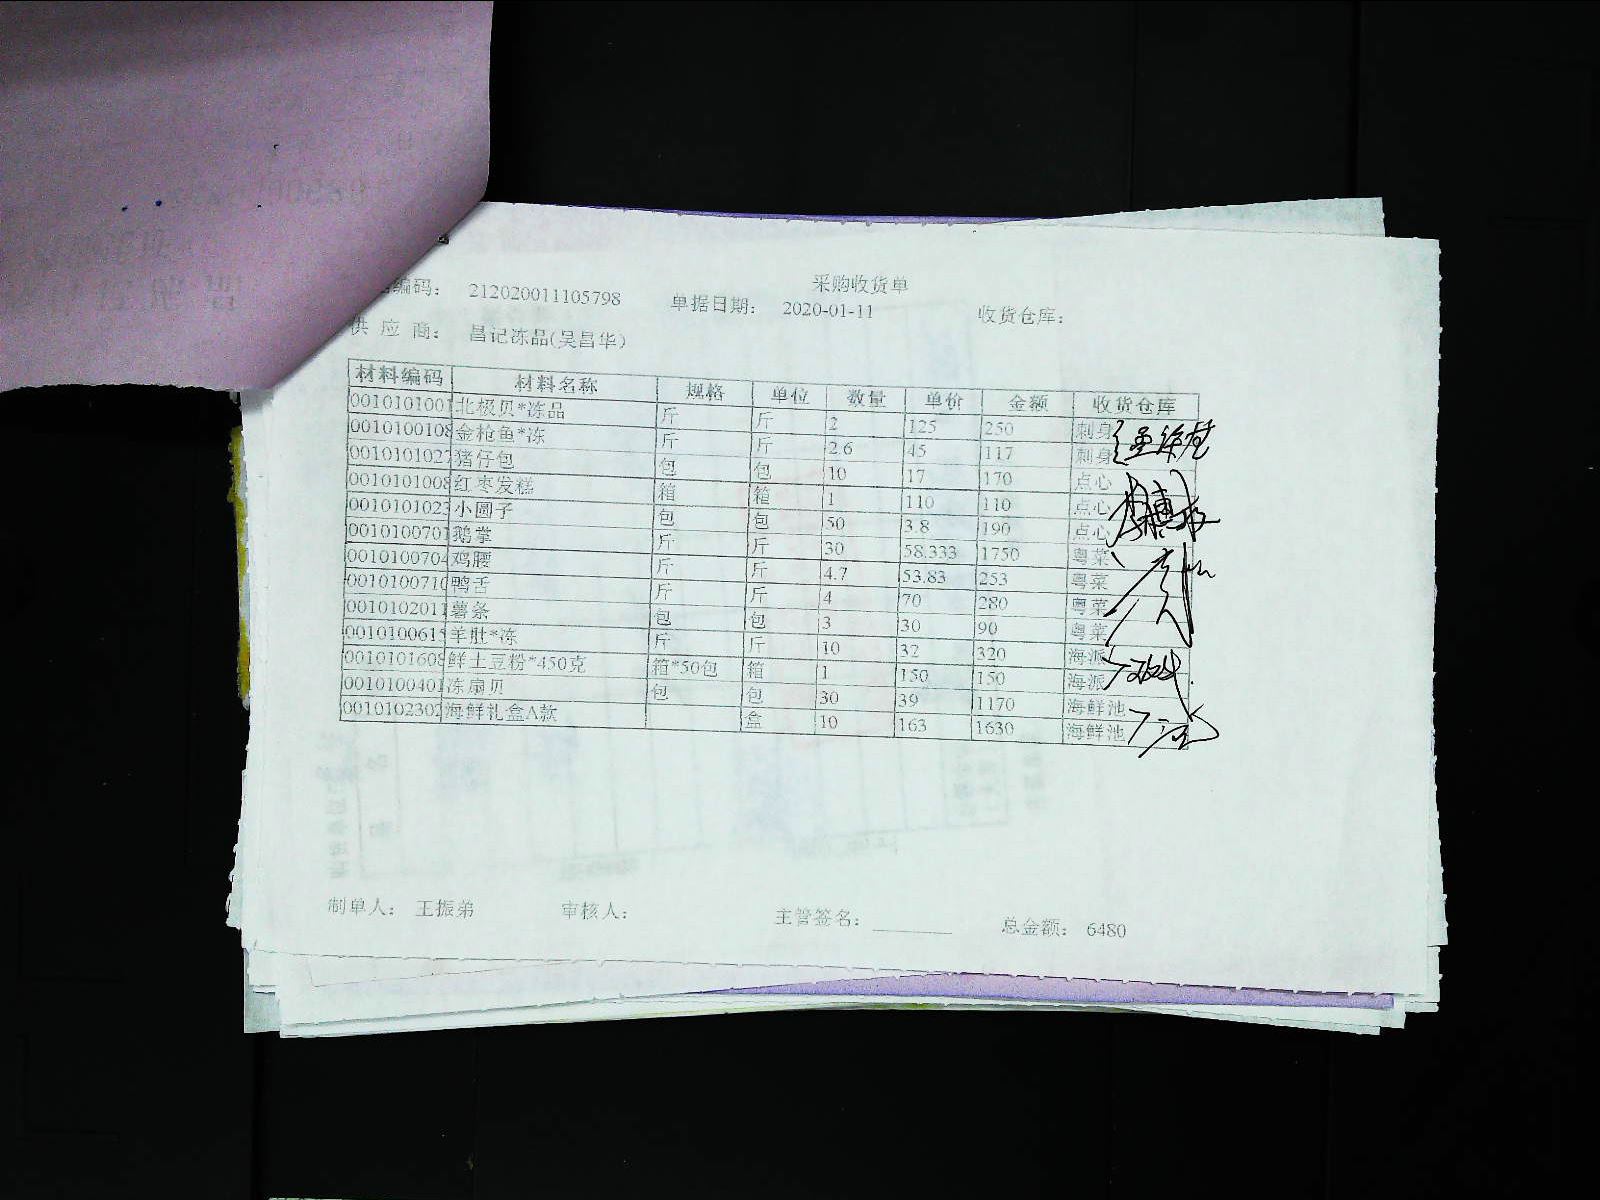 采购收货单
编码： 212020011105798 单据日期： 2020-01-11 收货仓库：
供 应 商： 昌记冻品(吴昌华)
材料编码 材料名称 规格 单位 数量 单价 金额 收货仓库
0010101001 北极贝*冻品 斤 斤 2 125 250 刺身
0010100108 金枪鱼*冻 斤 斤 2.6 45 117 刺身
0010101027 猪仔包 包 包 10 17 170 点心
0010101008 红枣发糕 箱 箱 1 110 110 点心
0010101023 小圆子 包 包 50 3.8 190 点心
0010100701 鹅掌 斤 斤 30 58.333 1750 粤菜
0010100704 鸡腰 斤 斤 4.7 53.83 253 粤菜
0010100710 鸭舌 斤 斤 4 70 280 粤菜
0010102011 薯条 包 包 3 30 90 粤菜
0010100615 羊肚*冻 斤 斤 10 32 320 海派
0010101608 鲜土豆粉*450克 箱*50包 箱 1 150 150 海派
0010100401 冻扇贝 包 包 30 39 1170 海鲜池
0010102302 海鲜礼盒A款 盒 10 163 1630 海鲜池
制单人： 王振弟 审核人： 主管签名： 总金额： 6480